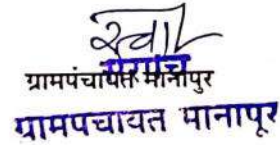 सरपंच
ग्रामपंचायत मानापुर
ग्रामपचायत मानापूर